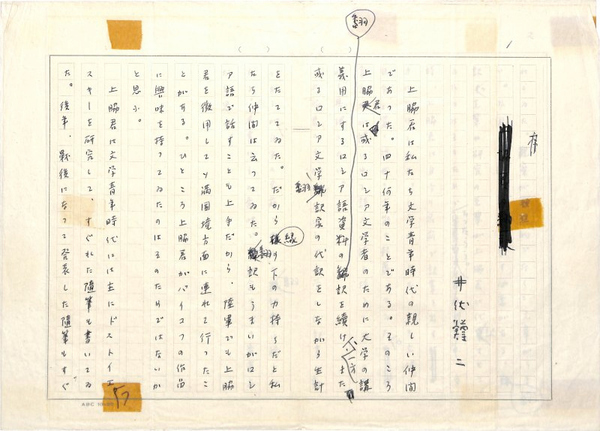 序
井伏鱒二
上脇君は私たち文学青年時代の親しい仲間
であった。四十何年のことである。そのころ
上脇君は或るロシア文学者のために大学の講
義用にするロシア語資料の翻訳を続け、一方
或るロシア文学翻訳家の代訳をしながら生計
をたててゐた。だから縁の下の力持ちだと私
たち仲間は云ってゐた。翻訳もうまいがロシ
ア語で話すことも上手だから、陸軍でも上脇
君を徴用して満国境方面に連れて行ったこ
とがある。ひところ上脇君がバイコフの作品
に興味を持ってゐたのはそのためではないか
と思ふ。
上脇君は文学青年時代には主にドストイエ
スキーを研究して、すぐれた随筆も書いてゐ
た。後年、戦後になって発表した随筆もすぐ